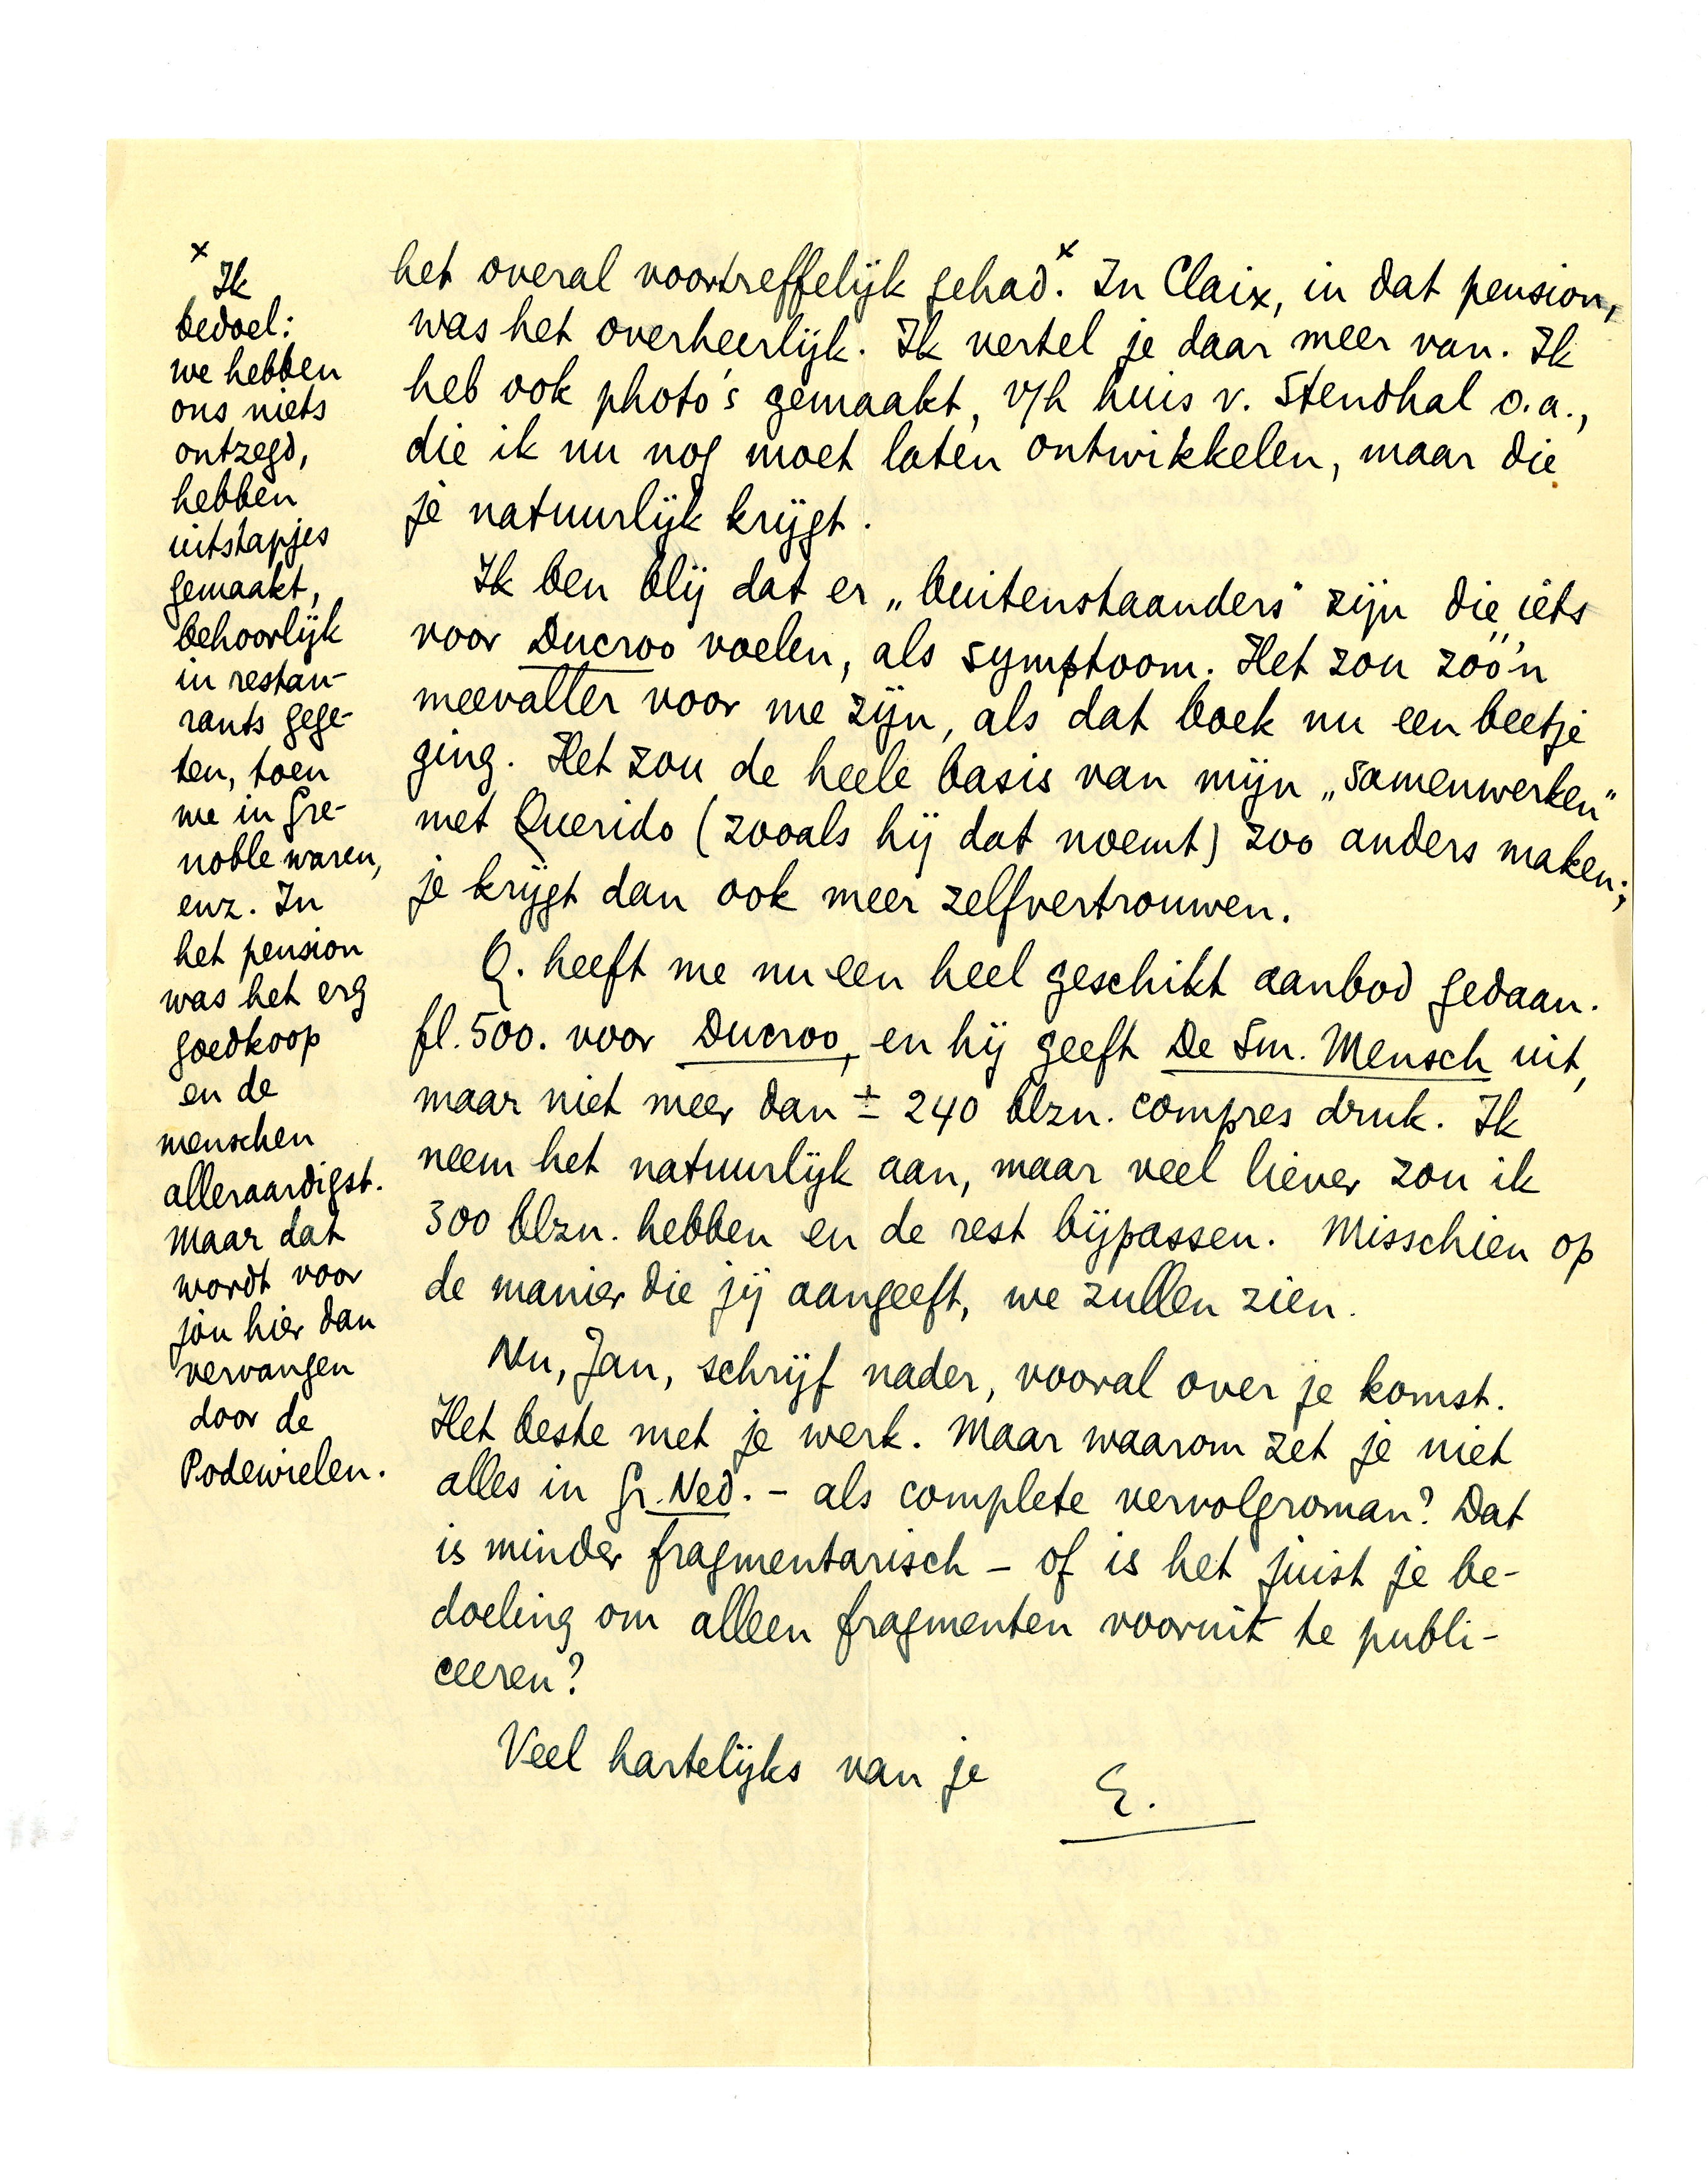 het overal voortreffelijk gehad.x In Claix, in dat pension,
was het overheerlijk. Ik vertel je daar meer van. Ik
heb ook photo's gemaakt, v/h huis v. Stendhal o.a.,
die ik nu nog moet laten ontwikkelen, maar die
je natuurlijk krijgt.
Ik ben blij dat er „buitenstaanders" zijn die iéts
voor Ducroo voelen, als symptoom. Het zou zóó'n
meevaller voor me zijn, als dat boek nu een beetje
ging. Het zou de heele basis van mijn „samenwerken"
met Querido (zooals hij dat noemt) zoo anders maken;
je krijgt dan ook meer zelfvertrouwen.
Q. heeft me nu een heel geschikt aanbod gedaan.
fl. 500. voor Ducroo, en hij geeft De Sm. Mensch uit,
maar niet meer dan ± 240 blzn. compres druk. Ik
neem het natuurlijk aan, maar veel liever zou ik
300 blzn. hebben en de rest bijpassen. Misschien op
de manier die jij aangeeft, we zullen zien.
Nu, Jan, schrijf nader, vooral over je komst.
Het beste met je werk. Maar waarom zet je niet
alles in Gr. Ned. - als complete vervolgroman? Dat
is minder fragmentarisch - of is het juist je be-
doeling om alleen fragmenten vooruit te publi-
ceeren?
Veel hartelijks van je
E.
x Ik
bedoel:
we hebben
ons niets
ontzegd,
hebben
uitstapjes
gemaakt,
behoorlijk
in restau-
rants gege-
ten, toen
we in Gre-
noble waren,
enz. In
het pension
was het erg
goedkoop
en de
menschen
alleraardigst.
Maar dat
wordt voor
jou hier dan
vervangen
door de
Podewielen.